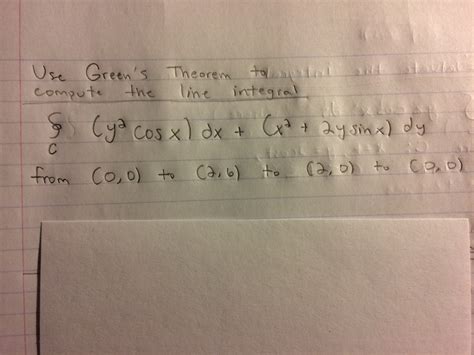 Use Green's Theorem to
compute the line integral
∮ (y² cos x) dx + (x² + 2y sin x) dy
C
from (0,0) to (2,6) to (2,0) to (0,0)